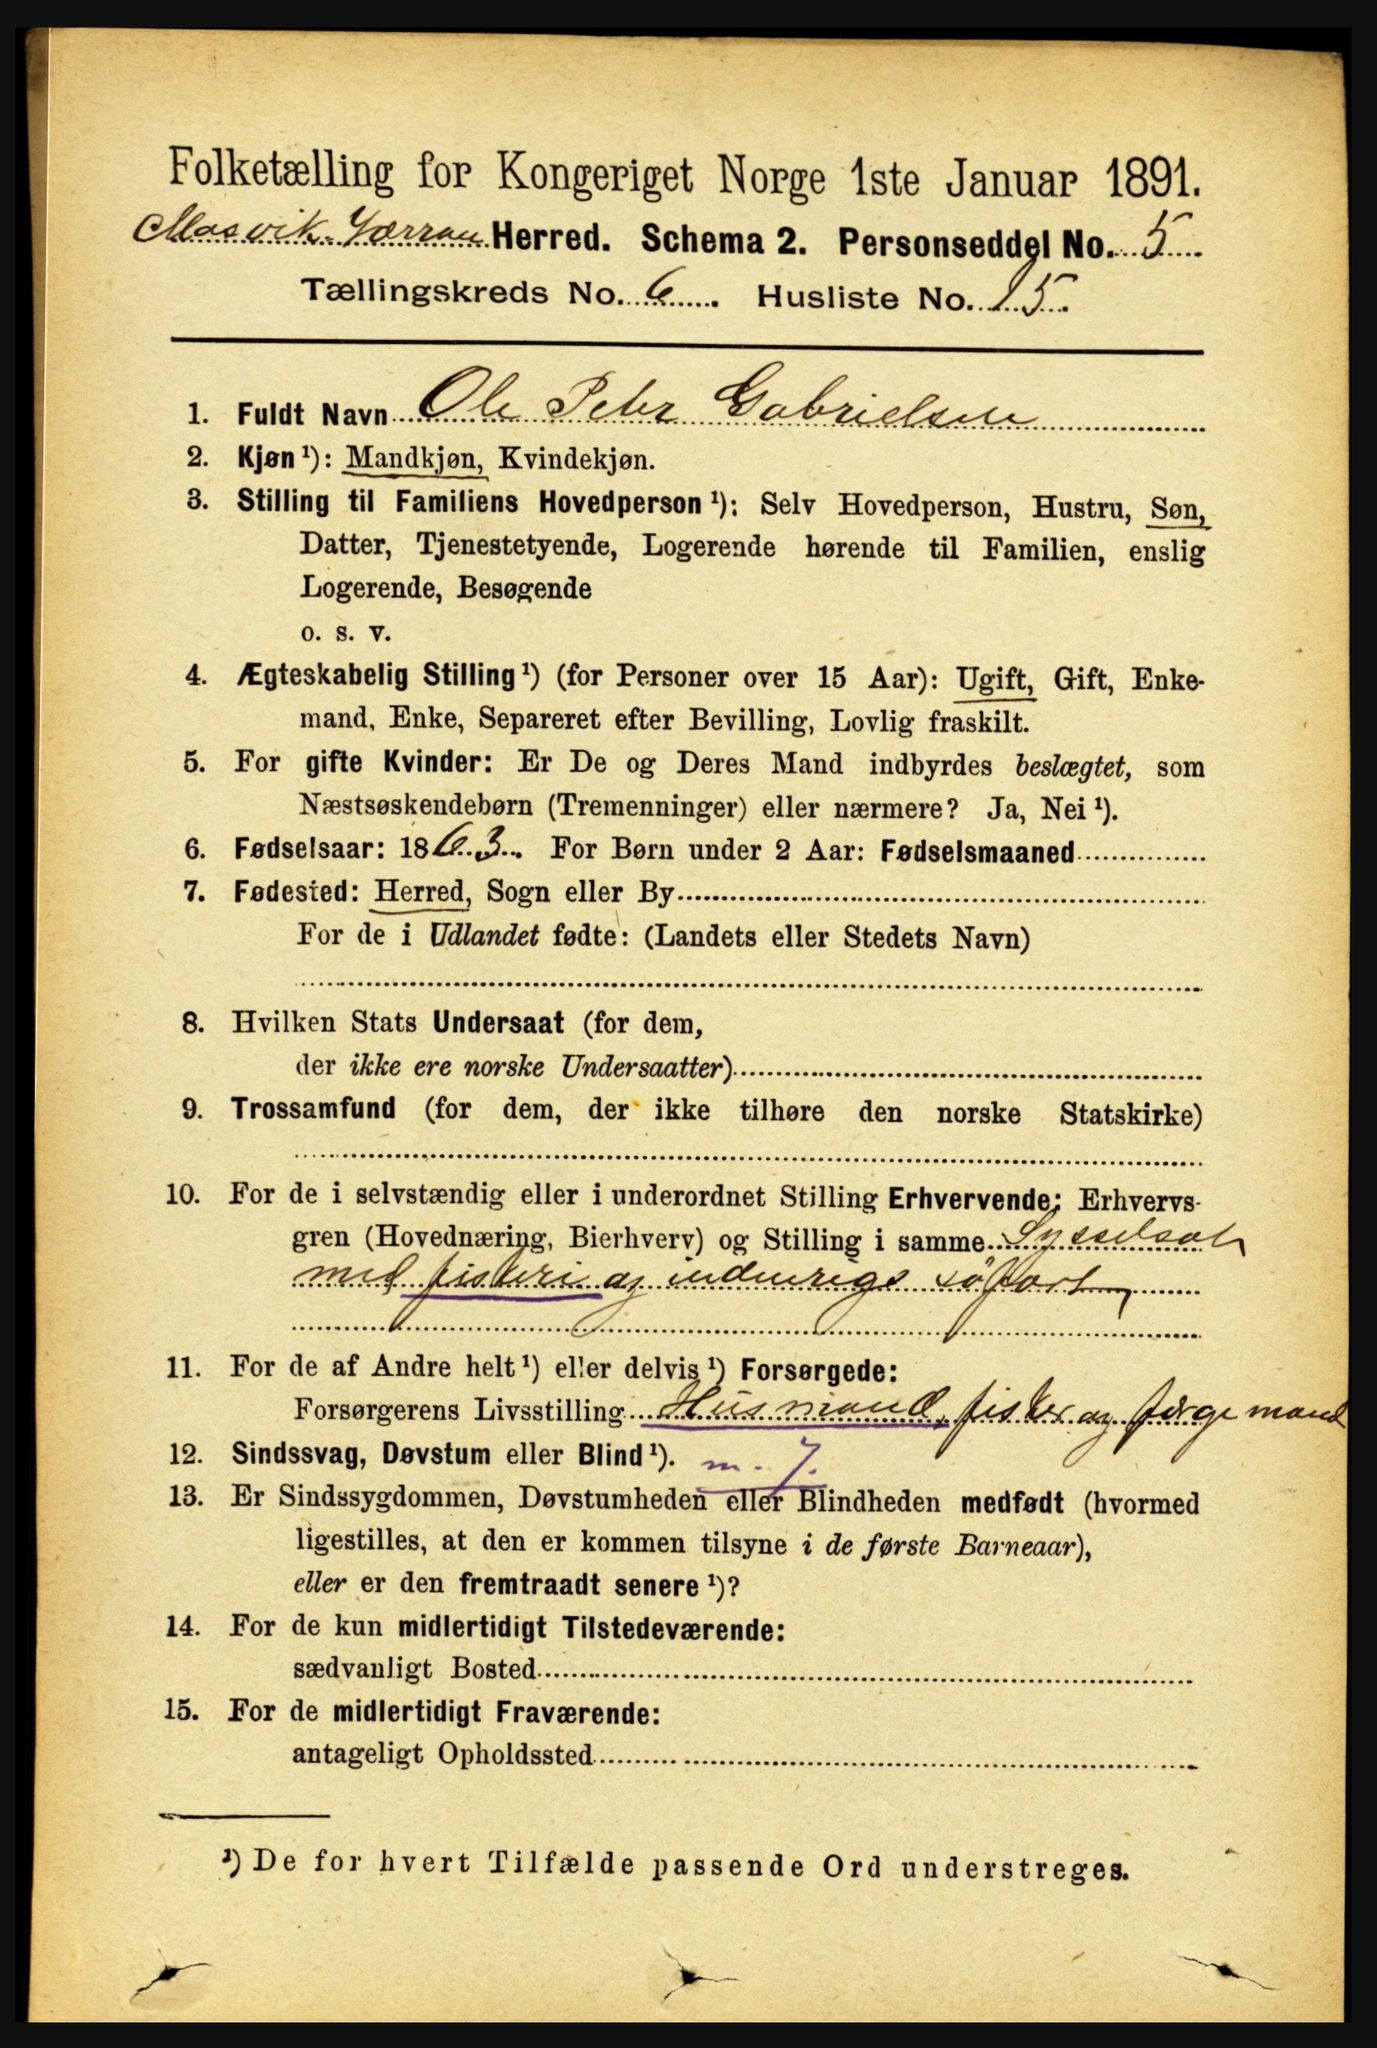 Folketælling for Kongeriget Norge 1ste Januar 1891.
Mosvik Værran Herred. Schema 2. Personseddel No. 5
Tællingskreds No. 6. Husliste No. 15.
1. Fuldt Navn Ole Peter Gabrielsen
2. Kjøn ¹): Mandkjøn, Kvindekjøn.
3. Stilling til Familiens Hovedperson ¹): Selv Hovedperson, Hustru, Søn,
Datter, Tjenestetyende, Logerende hørende til Familien, enslig
Logerende, Besøgende
o. s. v.
4. Ægteskabelig Stilling ¹) (for Personer over 15 Aar): Ugift, Gift, Enke-
mand, Enke, Separeret efter Bevilling, Lovlig fraskilt.
5. For gifte Kvinder: Er De og Deres Mand indbyrdes beslægtet, som
Næstsøskendebørn (Tremenninger) eller nærmere? Ja, Nei ¹).
6. Fødselsaar: 1863. For Børn under 2 Aar: Fødselsmaaned
7. Fødested: Herred, Sogn eller By
For de i Udlandet fødte: (Landets eller Stedets Navn)
8. Hvilken Stats Undersaat (for dem,
der ikke ere norske Undersaatter)
9. Trossamfund (for dem, der ikke tilhøre den norske Statskirke)
10. For de i selvstændig eller i underordnet Stilling Erhvervende: Erhvervs-
gren (Hovednæring, Bierhverv) og Stilling i samme Sysselsat
med fiskeri og indenrigs söfart
11. For de af Andre helt ¹) eller delvis ¹) Forsørgede:
Forsørgerens Livsstilling Husmand, fisker og færgemand
12. Sindssvag, Døvstum eller Blind ¹). m. 7.
13. Er Sindssygdommen, Døvstumheden eller Blindheden medfødt (hvormed
ligestilles, at den er kommen tilsyne i de første Barneaar),
eller er den fremtraadt senere ¹)?
14. For de kun midlertidigt Tilstedeværende:
sædvanligt Bosted
15. For de midlertidigt Fraværende:
antageligt Opholdssted
¹) De for hvert Tilfælde passende Ord understreges.